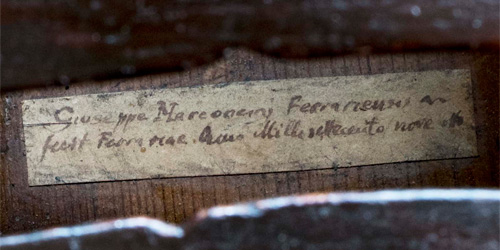 Giuseppe Marconcini Ferrariensis
fecit Ferrarae Anno Mille settecento nove